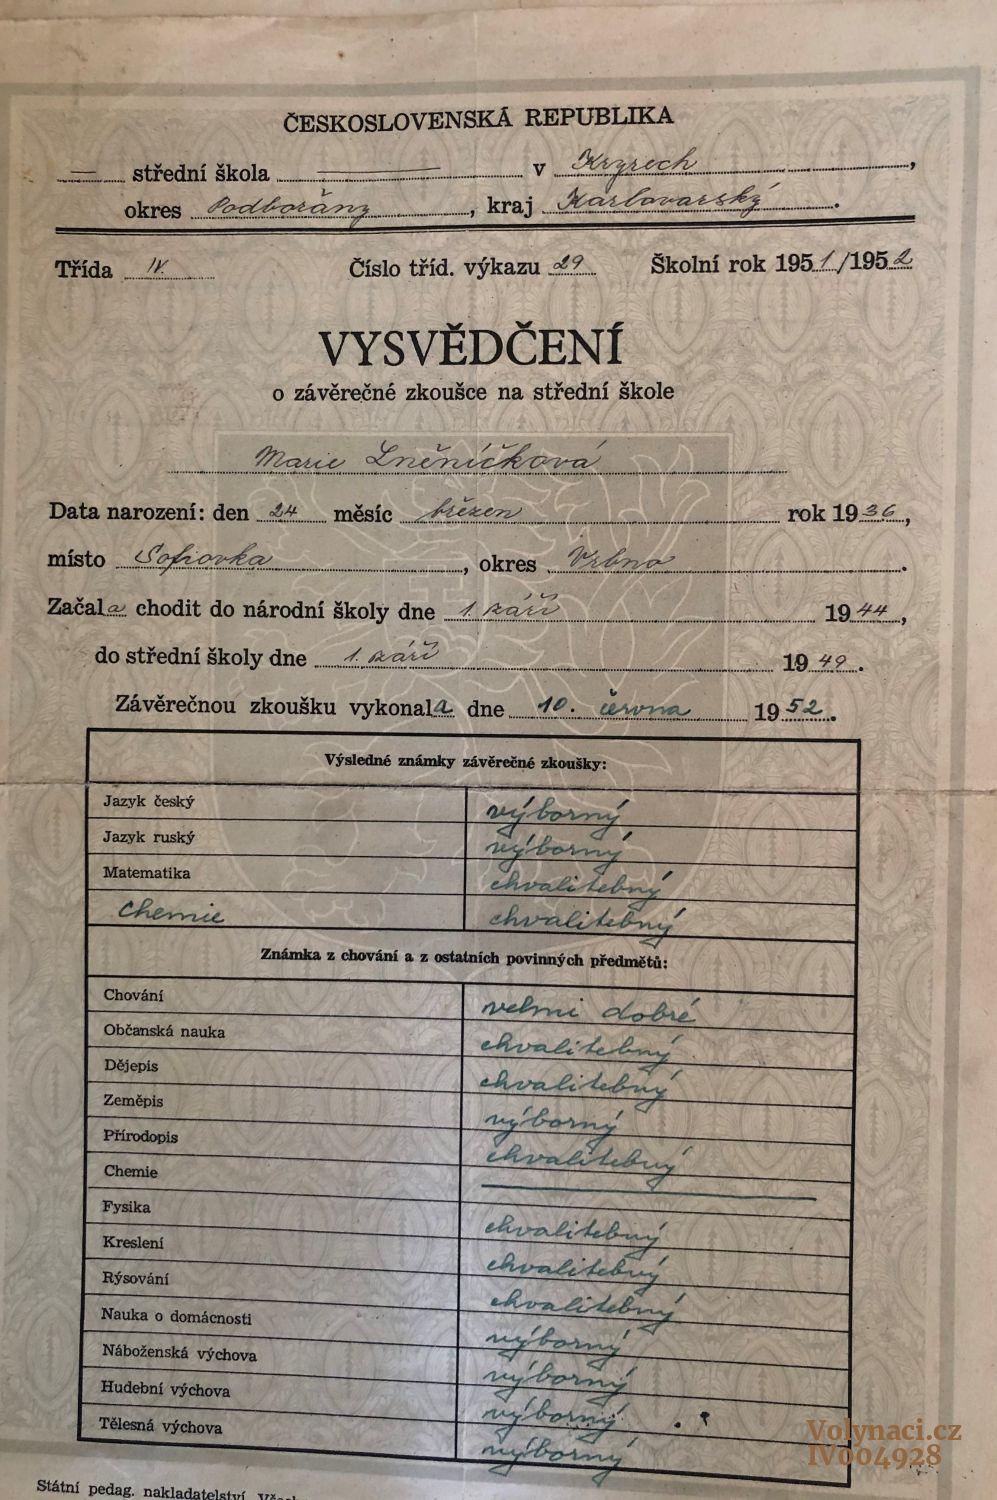 ČESKOSLOVENSKÁ REPUBLIKA
— střední škola — v Kryrech,
okres Podbořany, kraj Karlovarský.
Třída IV. Číslo tříd. výkazu 29 Školní rok 1951/1952
VYSVĚDČENÍ
o závěrečné zkoušce na střední škole
Marie Lněníčková
Data narození: den 24 měsíc březen rok 1936,
místo Sofiovka, okres Vrbno.
Začala chodit do národní školy dne 1. září 1944,
do střední školy dne 1. září 1949.
Závěrečnou zkoušku vykonala dne 10. června 1952.
Výsledné známky závěrečné zkoušky:
Jazyk český výborný
Jazyk ruský výborný
Matematika chvalitebný
Chemie chvalitebný
Známka z chování a z ostatních povinných předmětů:
Chování velmi dobré
Občanská nauka chvalitebný
Dějepis chvalitebný
Zeměpis výborný
Přírodopis chvalitebný
Chemie —
Fysika chvalitebný
Kreslení chvalitebný
Rýsování chvalitebný
Nauka o domácnosti výborný
Náboženská výchova výborný
Hudební výchova výborný
Tělesná výchova výborný
Státní pedag. nakladatelství
Volynaci.cz
IV004928